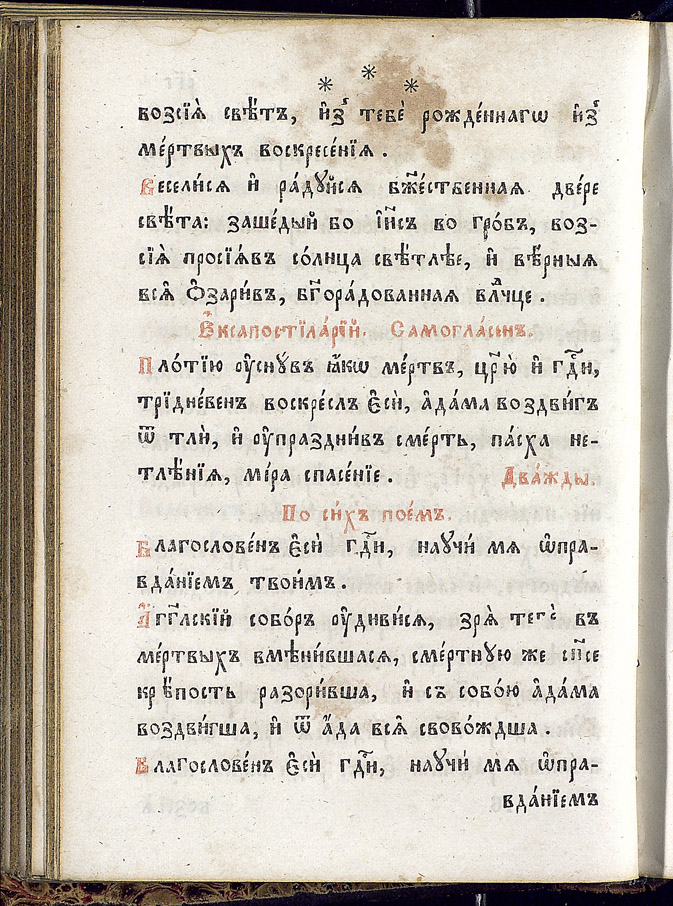 * * *
возсїѧ̀ свѣ́тъ, и҆з̾ тебѐ рожде́ннагѡ и҆з̾
ме́ртвыхъ воскресе́нїя .
Весели́сѧ и҆ ра́дꙋйсѧ бж҃е́ственная две́ре
свѣ́та: заше́дый бо і҆и҃съ во гро́бъ, воз-
сїѧ̀ просїѧ́въ со́лнца свѣтлѣ́е, и҆ вѣ́рныя
всѧ̀ ѡ҆зари́въ, бг҃ора́дованная влⷣчце .
Е҆ксапостїла́рїй. Самогла́сенъ.
Пло́тїю ᲂу҆снꙋ́въ ꙗ҆́кѡ ме́ртвъ, цр҃ю̀ и҆ гдⷭ҇и,
трїдне́венъ воскре́слъ є҆сѝ, а҆да́ма воздви́гъ
ѿ тлѝ, и҆ ᲂу҆праздни́въ сме́рть, па́сха не-
тлѣ́нїѧ, ми́ра спасе́нїе . Два́жды.
По си́хъ пое́мъ.
Благослове́нъ є҆сѝ гдⷭ҇и, наꙋчи́ мѧ ѡ҆пра-
вда́нїемъ твои̑мъ.
А҆́гг҃лскїй собо́ръ ᲂу҆диви́сѧ, зрѧ̀ тебѐ въ
ме́ртвыхъ вмѣни́вшасѧ, сме́ртнꙋю же сп҃се
крѣ́пость разори́вша, и҆ съ собо́ю а҆да́ма
воздви́гша, и҆ ѿ а҆́да всѧ̀ свобо́ждша .
Благослове́нъ є҆сѝ гдⷭ҇и, наꙋчи́ мѧ ѡ҆пра-
вда́нїемъ